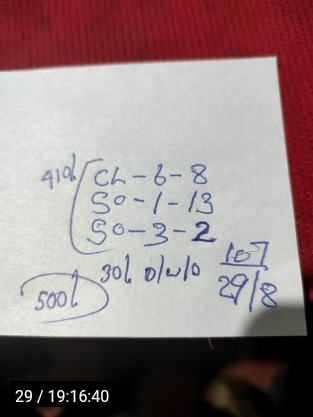 410/
CL-6-8
SO-1-13
SO-3-2
30/ 0/w/0
107
500/
29/8
29 / 19:16:40